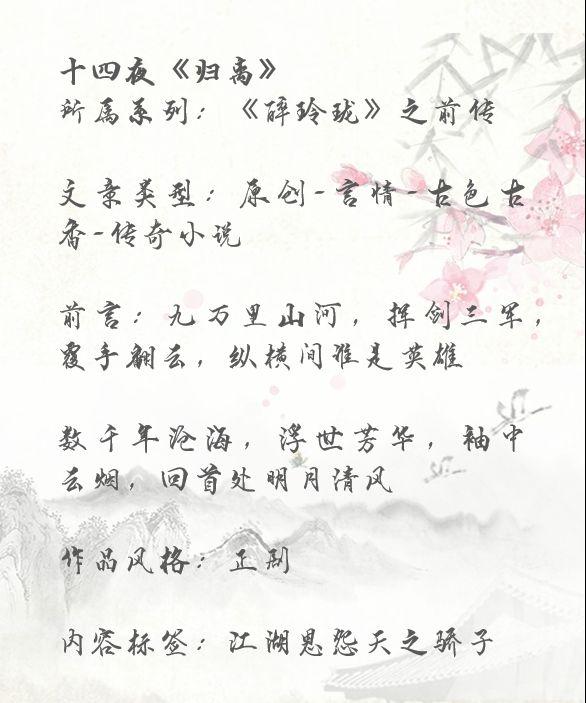 十四夜《归离》
所属系列：《醉玲珑》之前传
文章类型：原创-言情-古色古
香-传奇小说
前言：九万里山河，挥剑三军，
覆手翻云，纵横间谁是英雄
数千年沧海，浮世芳华，袖中
云烟，回首处明月清风
作品风格：正剧
内容标签：江湖恩怨天之骄子